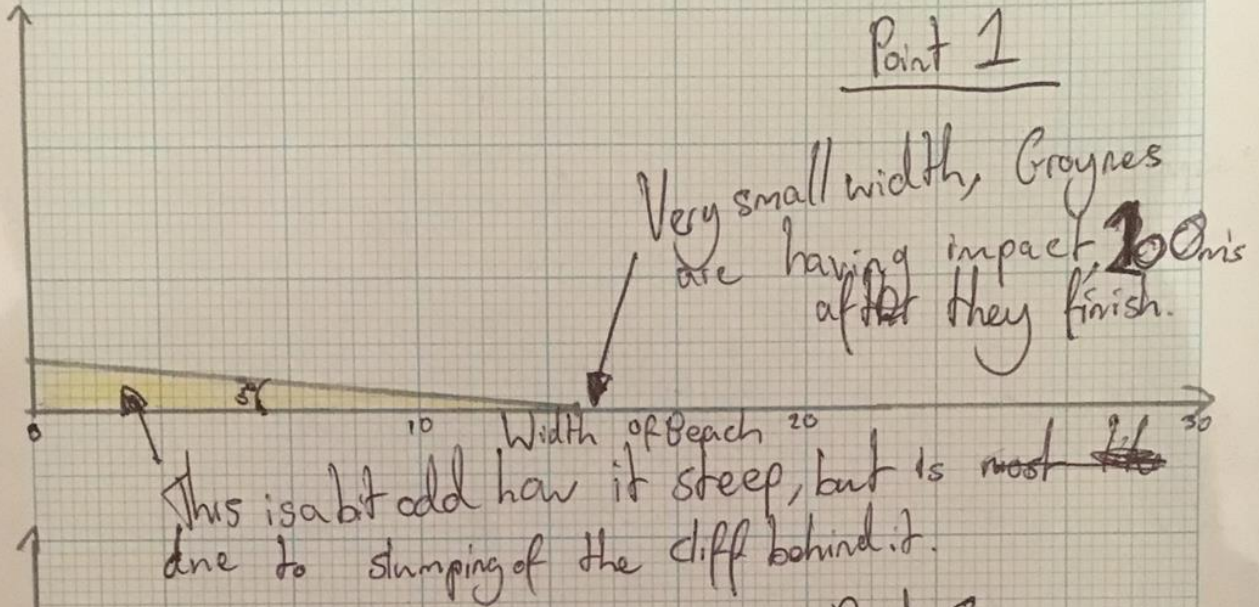 Point 1
Very small width, Groynes
are having impact, 100m's
after they finish.
5°
0 10 20 30
Width of Beach
This is a bit odd how it steep, but is most
due to slumping of the cliff behind it.